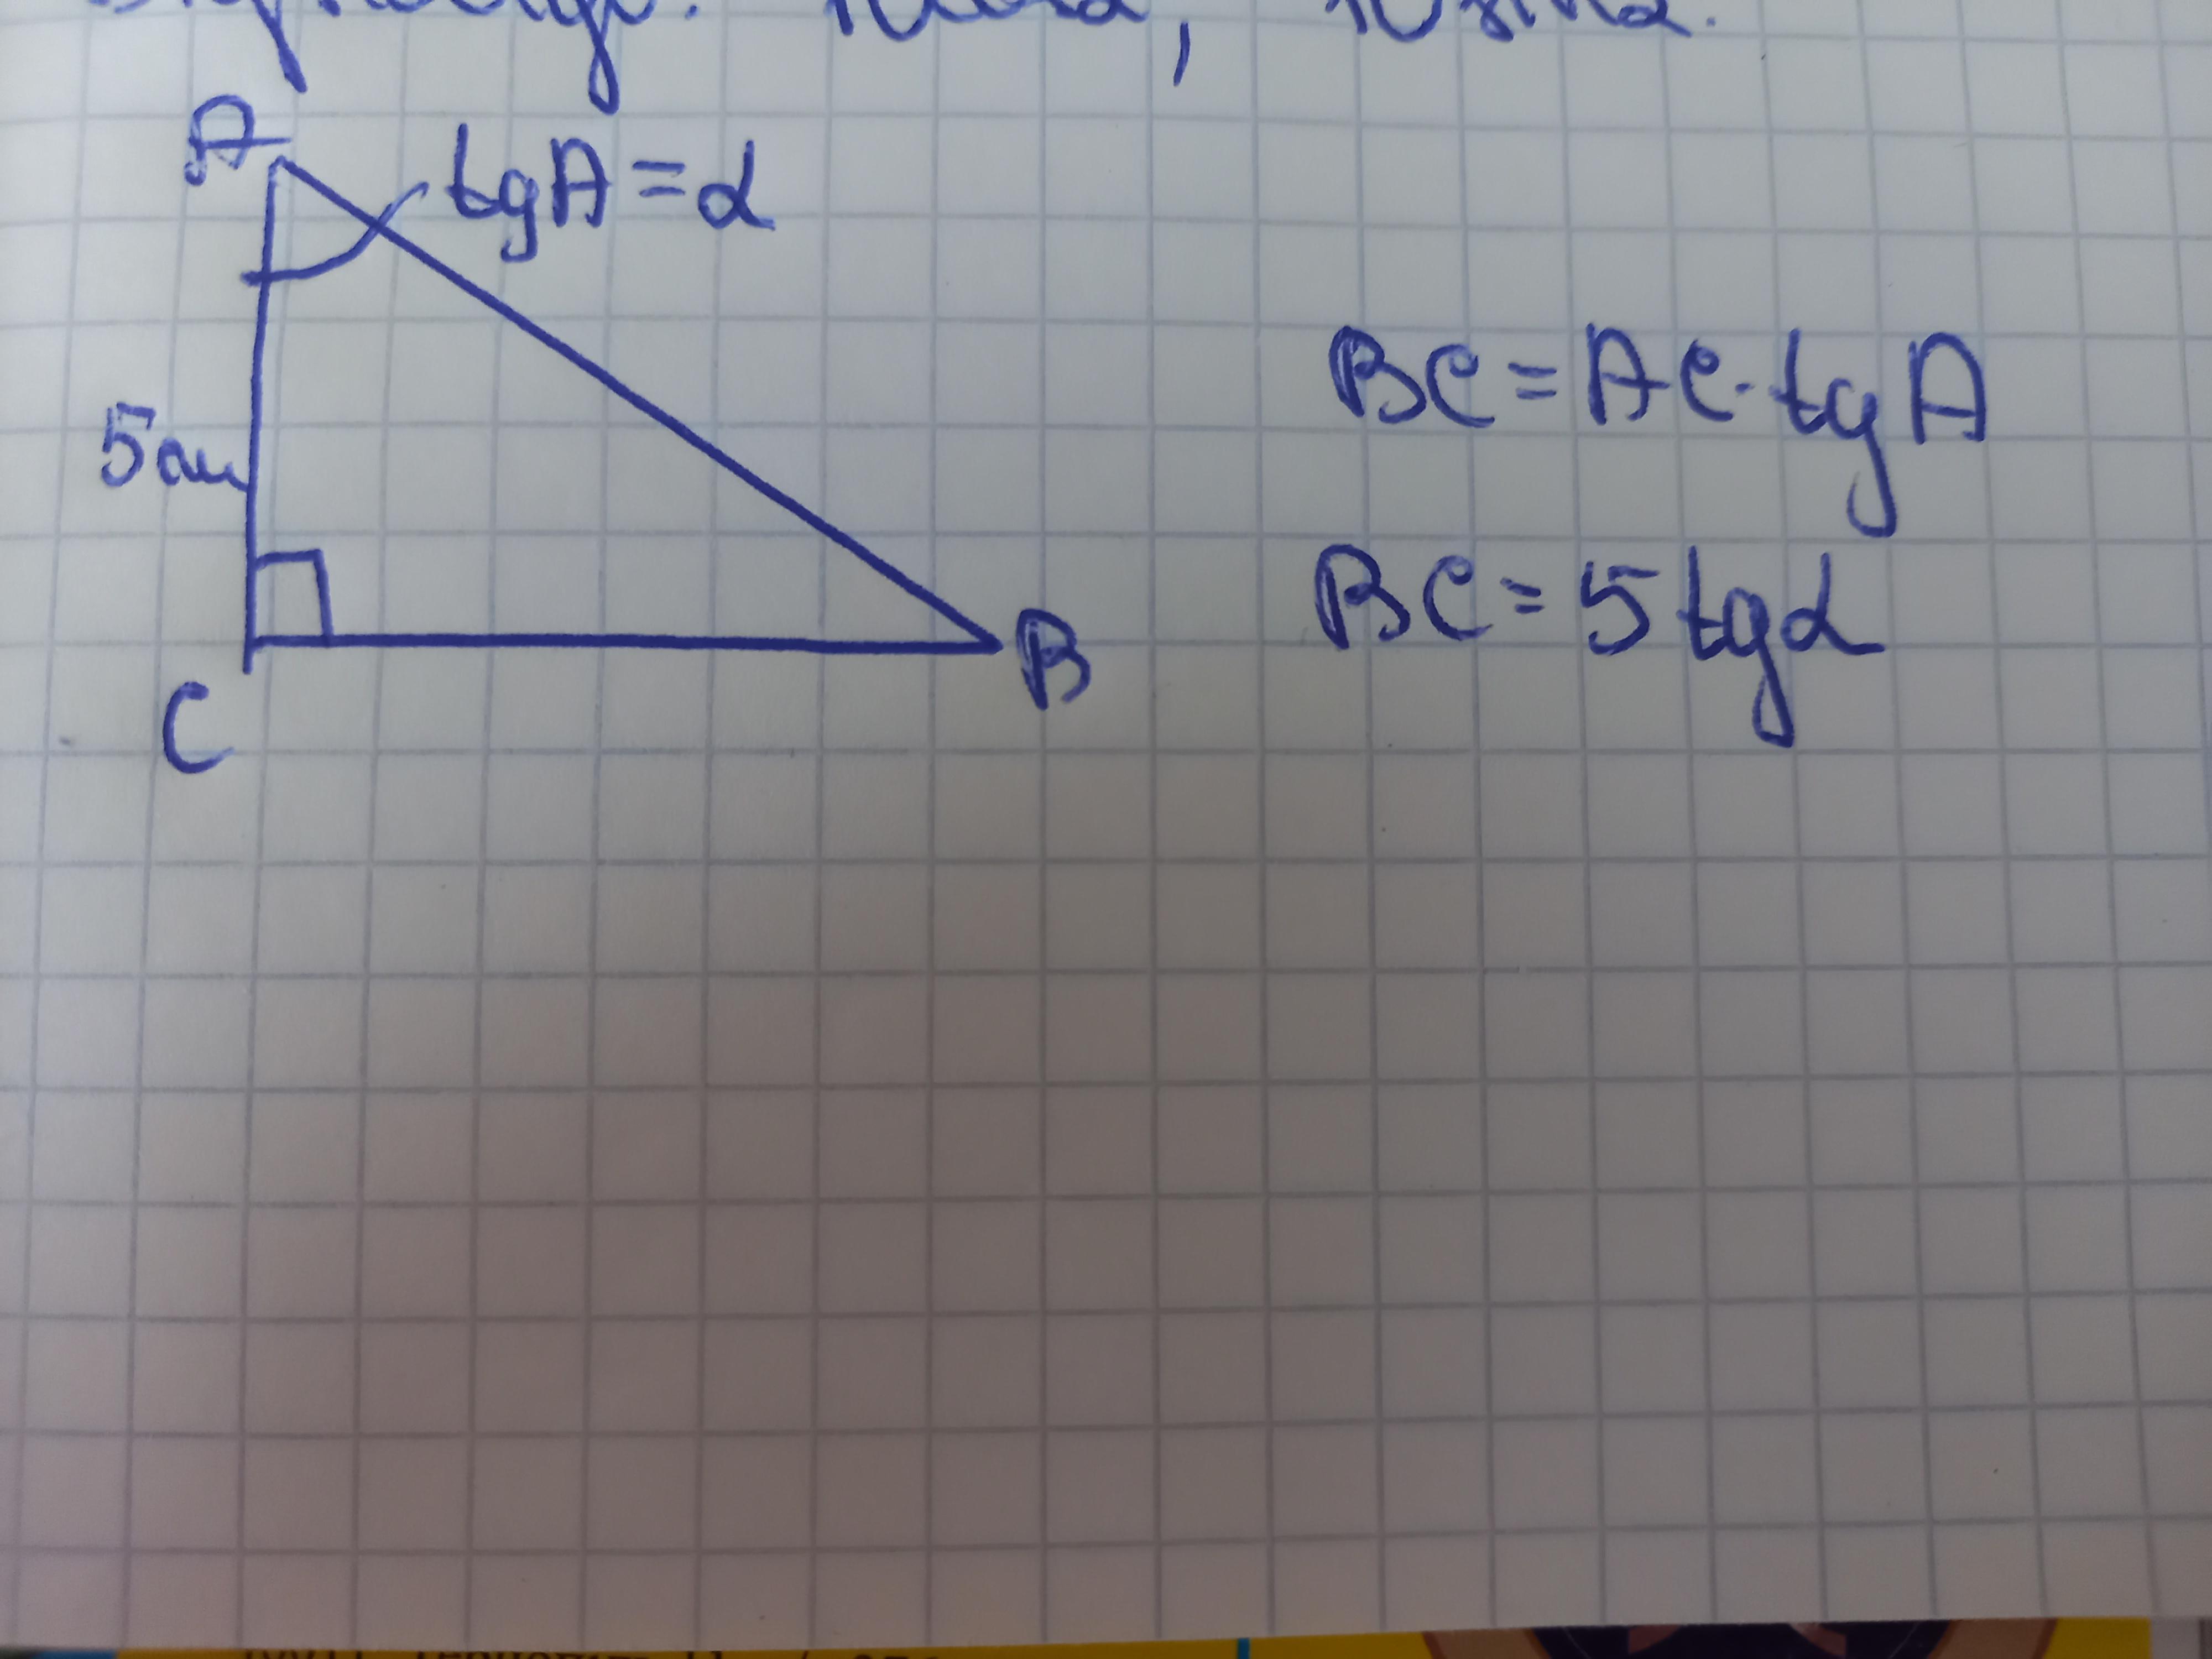 A
tgA = α
5см
C
B
BC = AC · tg A
BC = 5 tg α